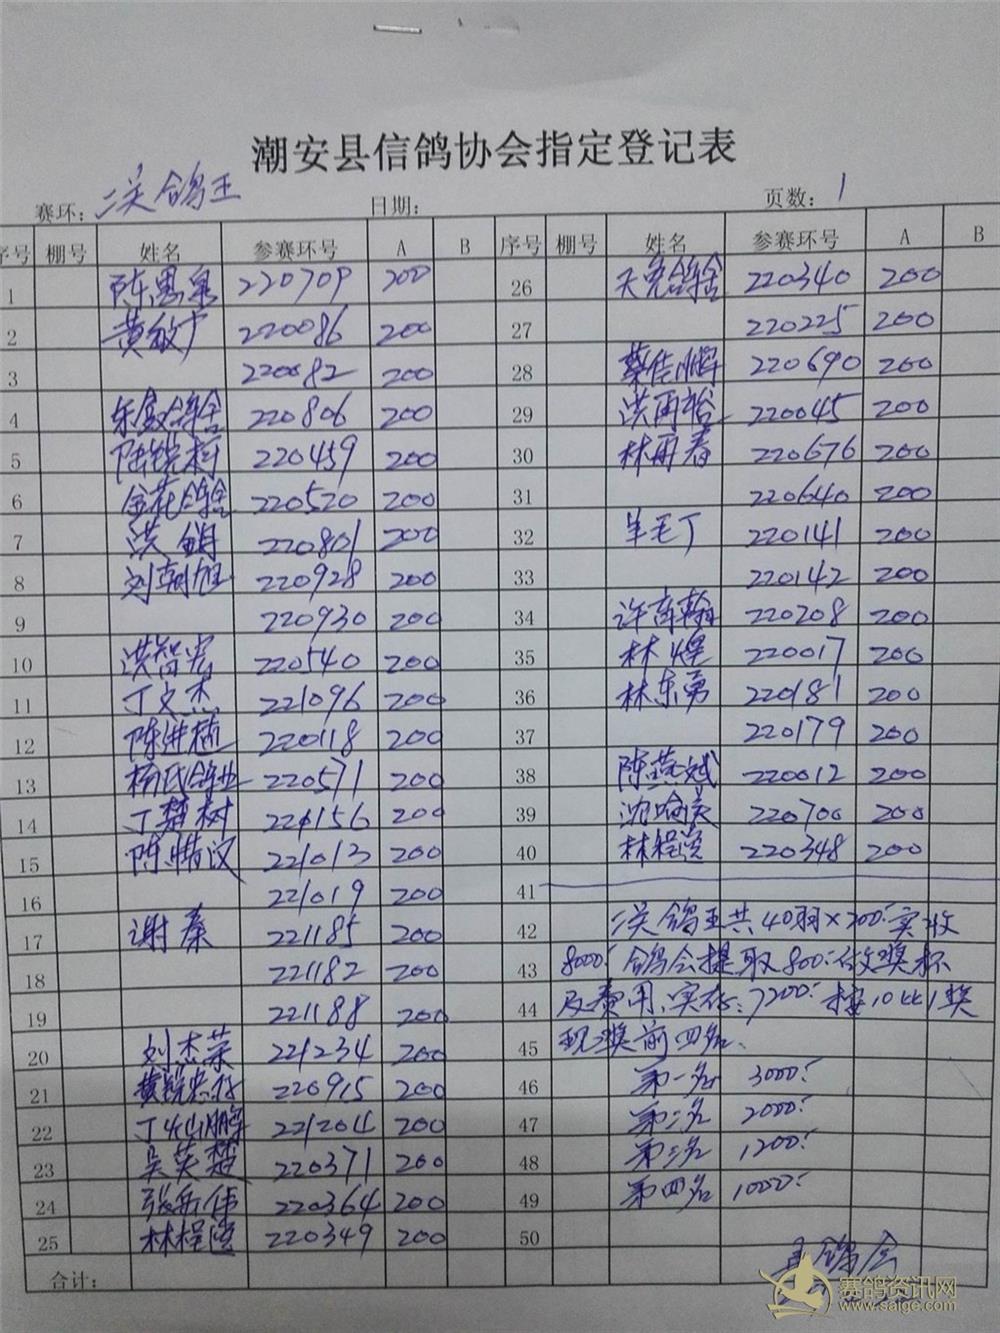 潮安县信鸽协会指定登记表
赛环: 二关鸽王 日期: 页数: 1
序号 棚号 姓名 参赛环号 A B 序号 棚号 姓名 参赛环号 A B
1 陈恩泉 220709 200 26 天亮鸽舍 220340 200
2 黄敏广 220086 200 27 220225 200
3 220082 200 28 蔡佳鹏 220690 200
4 东鑫鸽舍 220806 200 29 洪再裕 220045 200
5 陆锐利 220459 200 30 林再春 220676 200
6 金花鸽舍 220520 200 31 220640 200
7 洪 220801 200 32 羊毛丁 220141 200
8 刘朝旭 220928 200 33 220142 200
9 220930 200 34 许 220208 200
10 洪智宏 220540 200 35 林煌 220017 200
11 丁文杰 221096 200 36 林东勇 220181 200
12 陈进植 220118 200 37 220179 200
13 杨氏鸽业 220571 200 38 陈燕斌 220012 200
14 丁楚树 221156 200 39 沈 220700 200
15 陈惜汉 221013 200 40 林程 220348 200
16 221019 200 41
17 谢秦 221185 200 42 二关鸽王共40羽×200:实收
18 221182 200 43 8000:鸽会提取800:做奖杯
19 221188 200 44 及费用,实存:7200:按10比1奖
20 刘杰荣 221234 200 45 现奖前四名、
21 黄锐忠 220915 200 46 第一名 3000:
22 丁火山鹏 221204 200 47 第二名 2000:
23 吴英楚 220371 200 48 第三名 1200:
24 张岳伟 220364 200 49 第四名 1000:
25 林程 220349 200 50
合计: 鸽会
赛鸽资讯网
www.saige.com